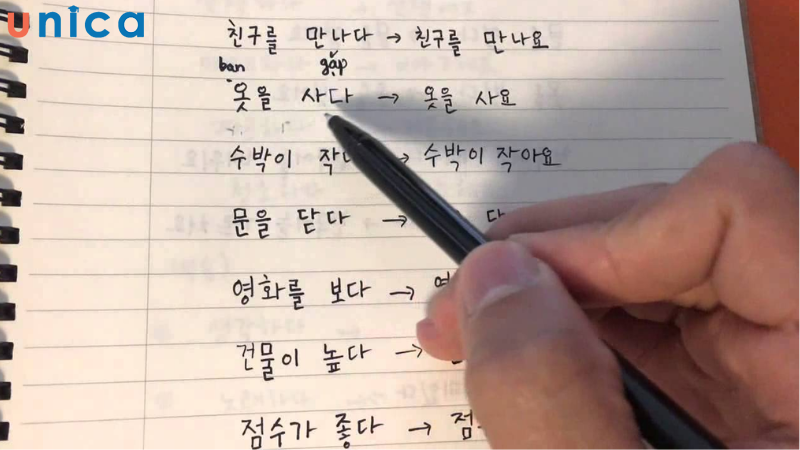 unica
친구를 만나다 → 친구를 만나요
bạn gặp
옷을 사다 → 옷을 사요
수박이 작 → 수박이 작아요
문을 닫다 →
영화를 보다 →
건물이 높다 →
점수가 좋다 → 점